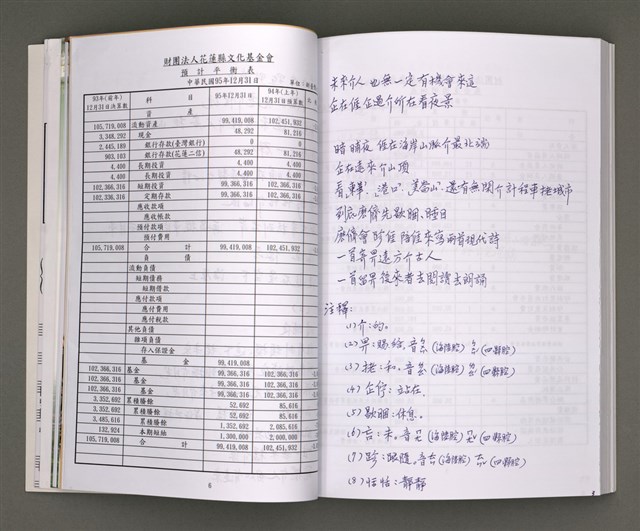 財團法人花蓮縣文化基金會
預計平衡表
中華民國95年12月31日
93年(前年)12月31日決算數 科目 95年12月31日 94年(上年)12月31日預算數
資產
105,719,008 流動資產 99,419,008 102,451,932
3,348,292 現金 48,292 81,216
2,445,189 銀行存款(臺灣銀行) 0 0
903,103 銀行存款(花蓮二信) 48,292 81,216
4,400 長期投資 4,400 4,400
4,400 長期投資 4,400 4,400
102,366,316 短期投資 99,366,316 102,366,316
102,336,316 定期存款 99,366,316 102,366,316
應收款項
應收帳款
預付款項
預付費用
105,719,008 合計 99,419,008 102,451,932
負債
流動負債
短期債務
短期借款
應付款項
應付費用
應付稅款
其他負債
雜項負債
存入保證金
基金 99,419,008
102,366,316 基金 99,366,316 102,366,316
102,366,316 基金 99,366,316 102,366,316
102,366,316 基金 99,366,316 102,366,316
3,352,692 累積賸餘 52,692 85,616
3,352,692 累積賸餘 52,692 85,616
3,485,616 累積賸餘 1,352,692 2,085,616
132,924 本期短絀 1,300,000 2,000,000
105,719,008 合計 99,419,008 102,451,932
6
未來介人 也無一定有機會來這
企在𠊎企過介所在看夜景
暗晡夜 𠊎在海岸山脈介最北端
企在這來介山頂
看車、港口、美崙山 還有無閒介計程車捷城市
到底麼儕先歇睏
麼儕會 𠊎 陪𠊎來寫兩首現代詩
一首寄畀遠方介古人
一首留畀後來者去閱讀去朗誦
注釋:
(1) 介:的。
(2) 畀:賜給。音 (海陸腔) (四縣腔)
(3) 捷:和。音 (海陸腔) (四縣腔)
(4) 企:站在。
(5) 歇睏:休息。
(6) 言:未。音 (海陸腔) (四縣腔)
(7) 跈:跟隨。音 (海陸腔) (四縣腔)
(8) 恬恬:靜靜